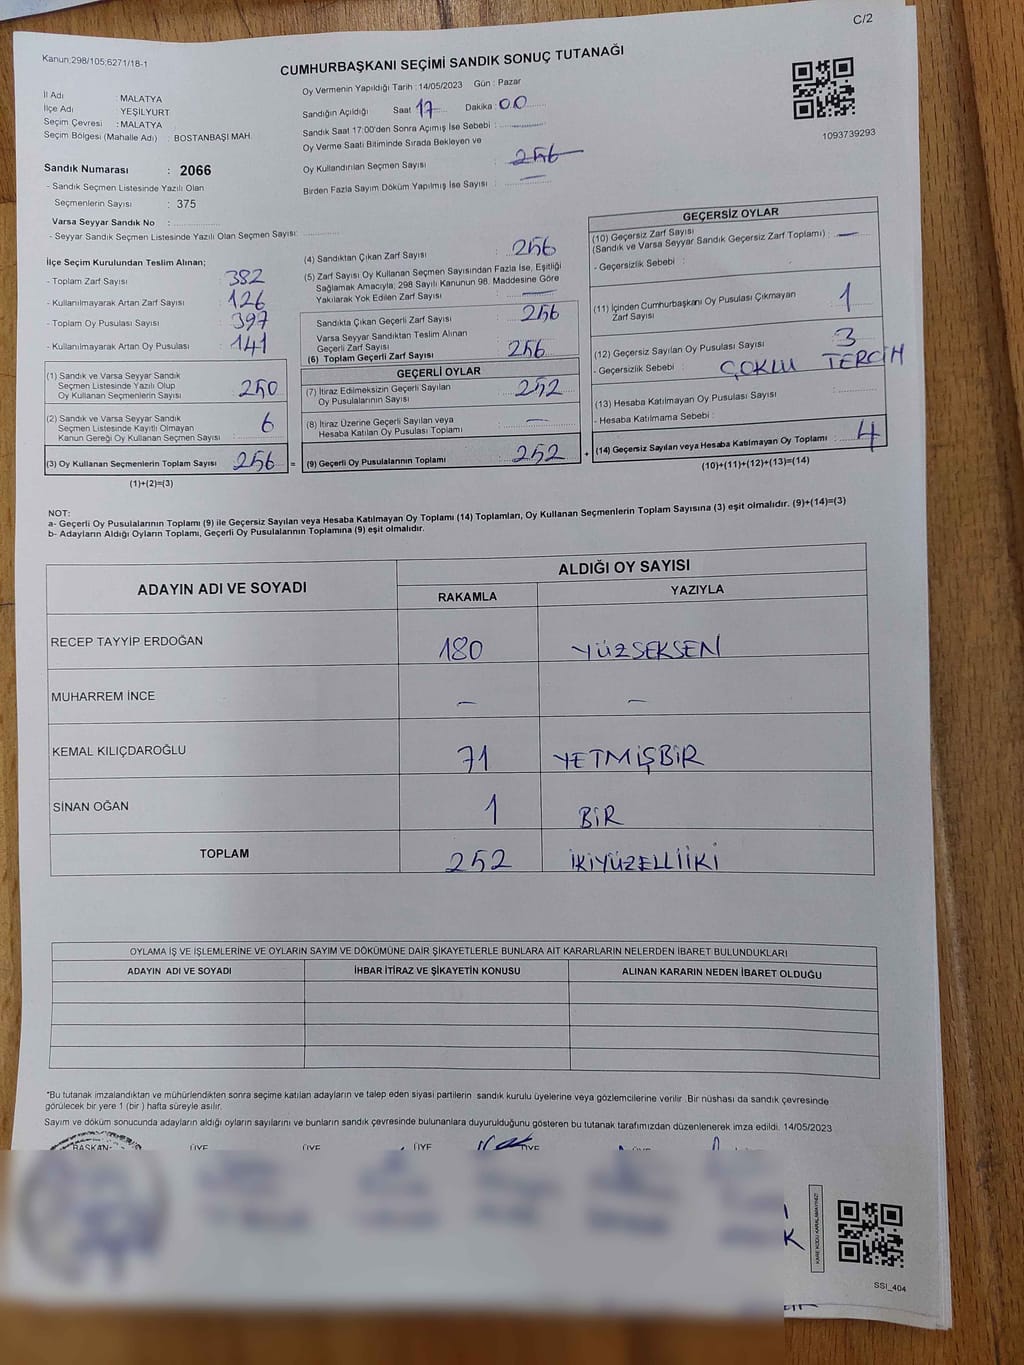 C/2
Kanun:298/105;6271/18-1
CUMHURBAŞKANI SEÇİMİ SANDIK SONUÇ TUTANAĞI
İl Adı : MALATYA
İlçe Adı : YEŞİLYURT
Seçim Çevresi : MALATYA
Seçim Bölgesi (Mahalle Adı) : BOSTANBAŞI MAH.
Sandık Numarası : 2066
- Sandık Seçmen Listesinde Yazılı Olan
Seçmenlerin Sayısı : 375
Varsa Seyyar Sandık No :
- Seyyar Sandık Seçmen Listesinde Yazılı Olan Seçmen Sayısı:
Oy Vermenin Yapıldığı Tarih : 14/05/2023 Gün : Pazar
Sandığın Açıldığı Saat 17 Dakika : 00
Sandık Saat 17:00'den Sonra Açımış İse Sebebi :
Oy Verme Saati Bitiminde Sırada Bekleyen ve
Oy Kullandırılan Seçmen Sayısı : 256
Birden Fazla Sayım Döküm Yapılmış İse Sayısı : —
1093739293
İlçe Seçim Kurulundan Teslim Alınan;
- Toplam Zarf Sayısı : 382
- Kullanılmayarak Artan Zarf Sayısı : 126
- Toplam Oy Pusulası Sayısı : 397
- Kullanılmayarak Artan Oy Pusulası : 141
(1) Sandık ve Varsa Seyyar Sandık
Seçmen Listesinde Yazılı Olup
Oy Kullanan Seçmenlerin Sayısı : 250
(2) Sandık ve Varsa Seyyar Sandık
Seçmen Listesinde Kayıtlı Olmayan
Kanun Gereği Oy Kullanan Seçmen Sayısı : 6
(3) Oy Kullanan Seçmenlerin Toplam Sayısı : 256 =
(1)+(2)=(3)
(4) Sandıktan Çıkan Zarf Sayısı : 256
(5) Zarf Sayısı Oy Kullanan Seçmen Sayısından Fazla İse, Eşitliği
Sağlamak Amacıyla; 298 Sayılı Kanunun 98. Maddesine Göre
Yakılarak Yok Edilen Zarf Sayısı : —
Sandıkta Çıkan Geçerli Zarf Sayısı : 256
Varsa Seyyar Sandıktan Teslim Alınan
Geçerli Zarf Sayısı :
(6) Toplam Geçerli Zarf Sayısı : 256
GEÇERLİ OYLAR
(7) İtiraz Edilmeksizin Geçerli Sayılan
Oy Pusulalarının Sayısı : 252
(8) İtiraz Üzerine Geçerli Sayılan veya
Hesaba Katılan Oy Pusulası Toplamı : —
(9) Geçerli Oy Pusulalarının Toplamı : 252 +
GEÇERSİZ OYLAR
(10) Geçersiz Zarf Sayısı
(Sandık ve Varsa Seyyar Sandık Geçersiz Zarf Toplamı) : —
- Geçersizlik Sebebi :
(11) İçinden Cumhurbaşkanı Oy Pusulası Çıkmayan
Zarf Sayısı : 1
(12) Geçersiz Sayılan Oy Pusulası Sayısı : 3
- Geçersizlik Sebebi : ÇOKLU TERCİH
(13) Hesaba Katılmayan Oy Pusulası Sayısı :
- Hesaba Katılmama Sebebi :
(14) Geçersiz Sayılan veya Hesaba Katılmayan Oy Toplamı : 4
(10)+(11)+(12)+(13)=(14)
NOT:
a- Geçerli Oy Pusulalarının Toplamı (9) ile Geçersiz Sayılan veya Hesaba Katılmayan Oy Toplamı (14) Toplamları, Oy Kullanan Seçmenlerin Toplam Sayısına (3) eşit olmalıdır. (9)+(14)=(3)
b- Adayların Aldığı Oyların Toplamı, Geçerli Oy Pusulalarının Toplamına (9) eşit olmalıdır.
ADAYIN ADI VE SOYADI ALDIĞI OY SAYISI
RAKAMLA YAZIYLA
RECEP TAYYİP ERDOĞAN 180 YÜZSEKSEN
MUHARREM İNCE — —
KEMAL KILIÇDAROĞLU 71 YETMİŞBİR
SİNAN OĞAN 1 BİR
TOPLAM 252 İKİYÜZELLİİKİ
OYLAMA İŞ VE İŞLEMLERİNE VE OYLARIN SAYIM VE DÖKÜMÜNE DAİR ŞİKAYETLERLE BUNLARA AİT KARARLARIN NELERDEN İBARET BULUNDUKLARI
ADAYIN ADI VE SOYADI İHBAR İTİRAZ VE ŞİKAYETİN KONUSU ALINAN KARARIN NEDEN İBARET OLDUĞU
*Bu tutanak imzalandıktan ve mühürlendikten sonra seçime katılan adayların ve talep eden siyasi partilerin sandık kurulu üyelerine veya gözlemcilerine verilir .Bir nüshası da sandık çevresinde
görülecek bir yere 1 (bir ) hafta süreyle asılır.
Sayım ve döküm sonucunda adayların aldığı oyların sayılarını ve bunların sandık çevresinde bulunanlara duyurulduğunu gösteren bu tutanak tarafımızdan düzenlenerek imza edildi. 14/05/2023
BAŞKAN ÜYE ÜYE ÜYE ÜYE ÜYE
KARE KODU KARALAMAYINIZ!
SSI_404